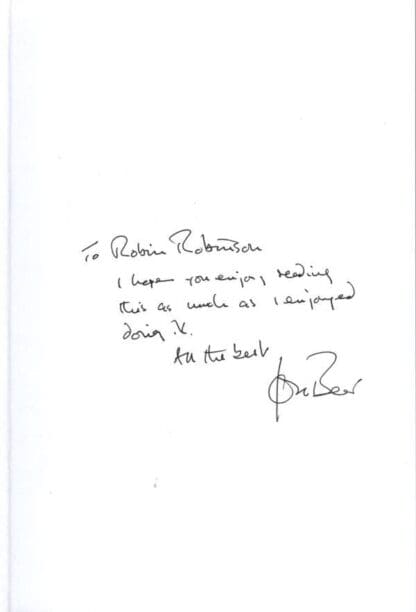 To Robin Robinson
I hope you enjoy reading
this as much as I enjoyed
doing it.
All the best
Jon Beer